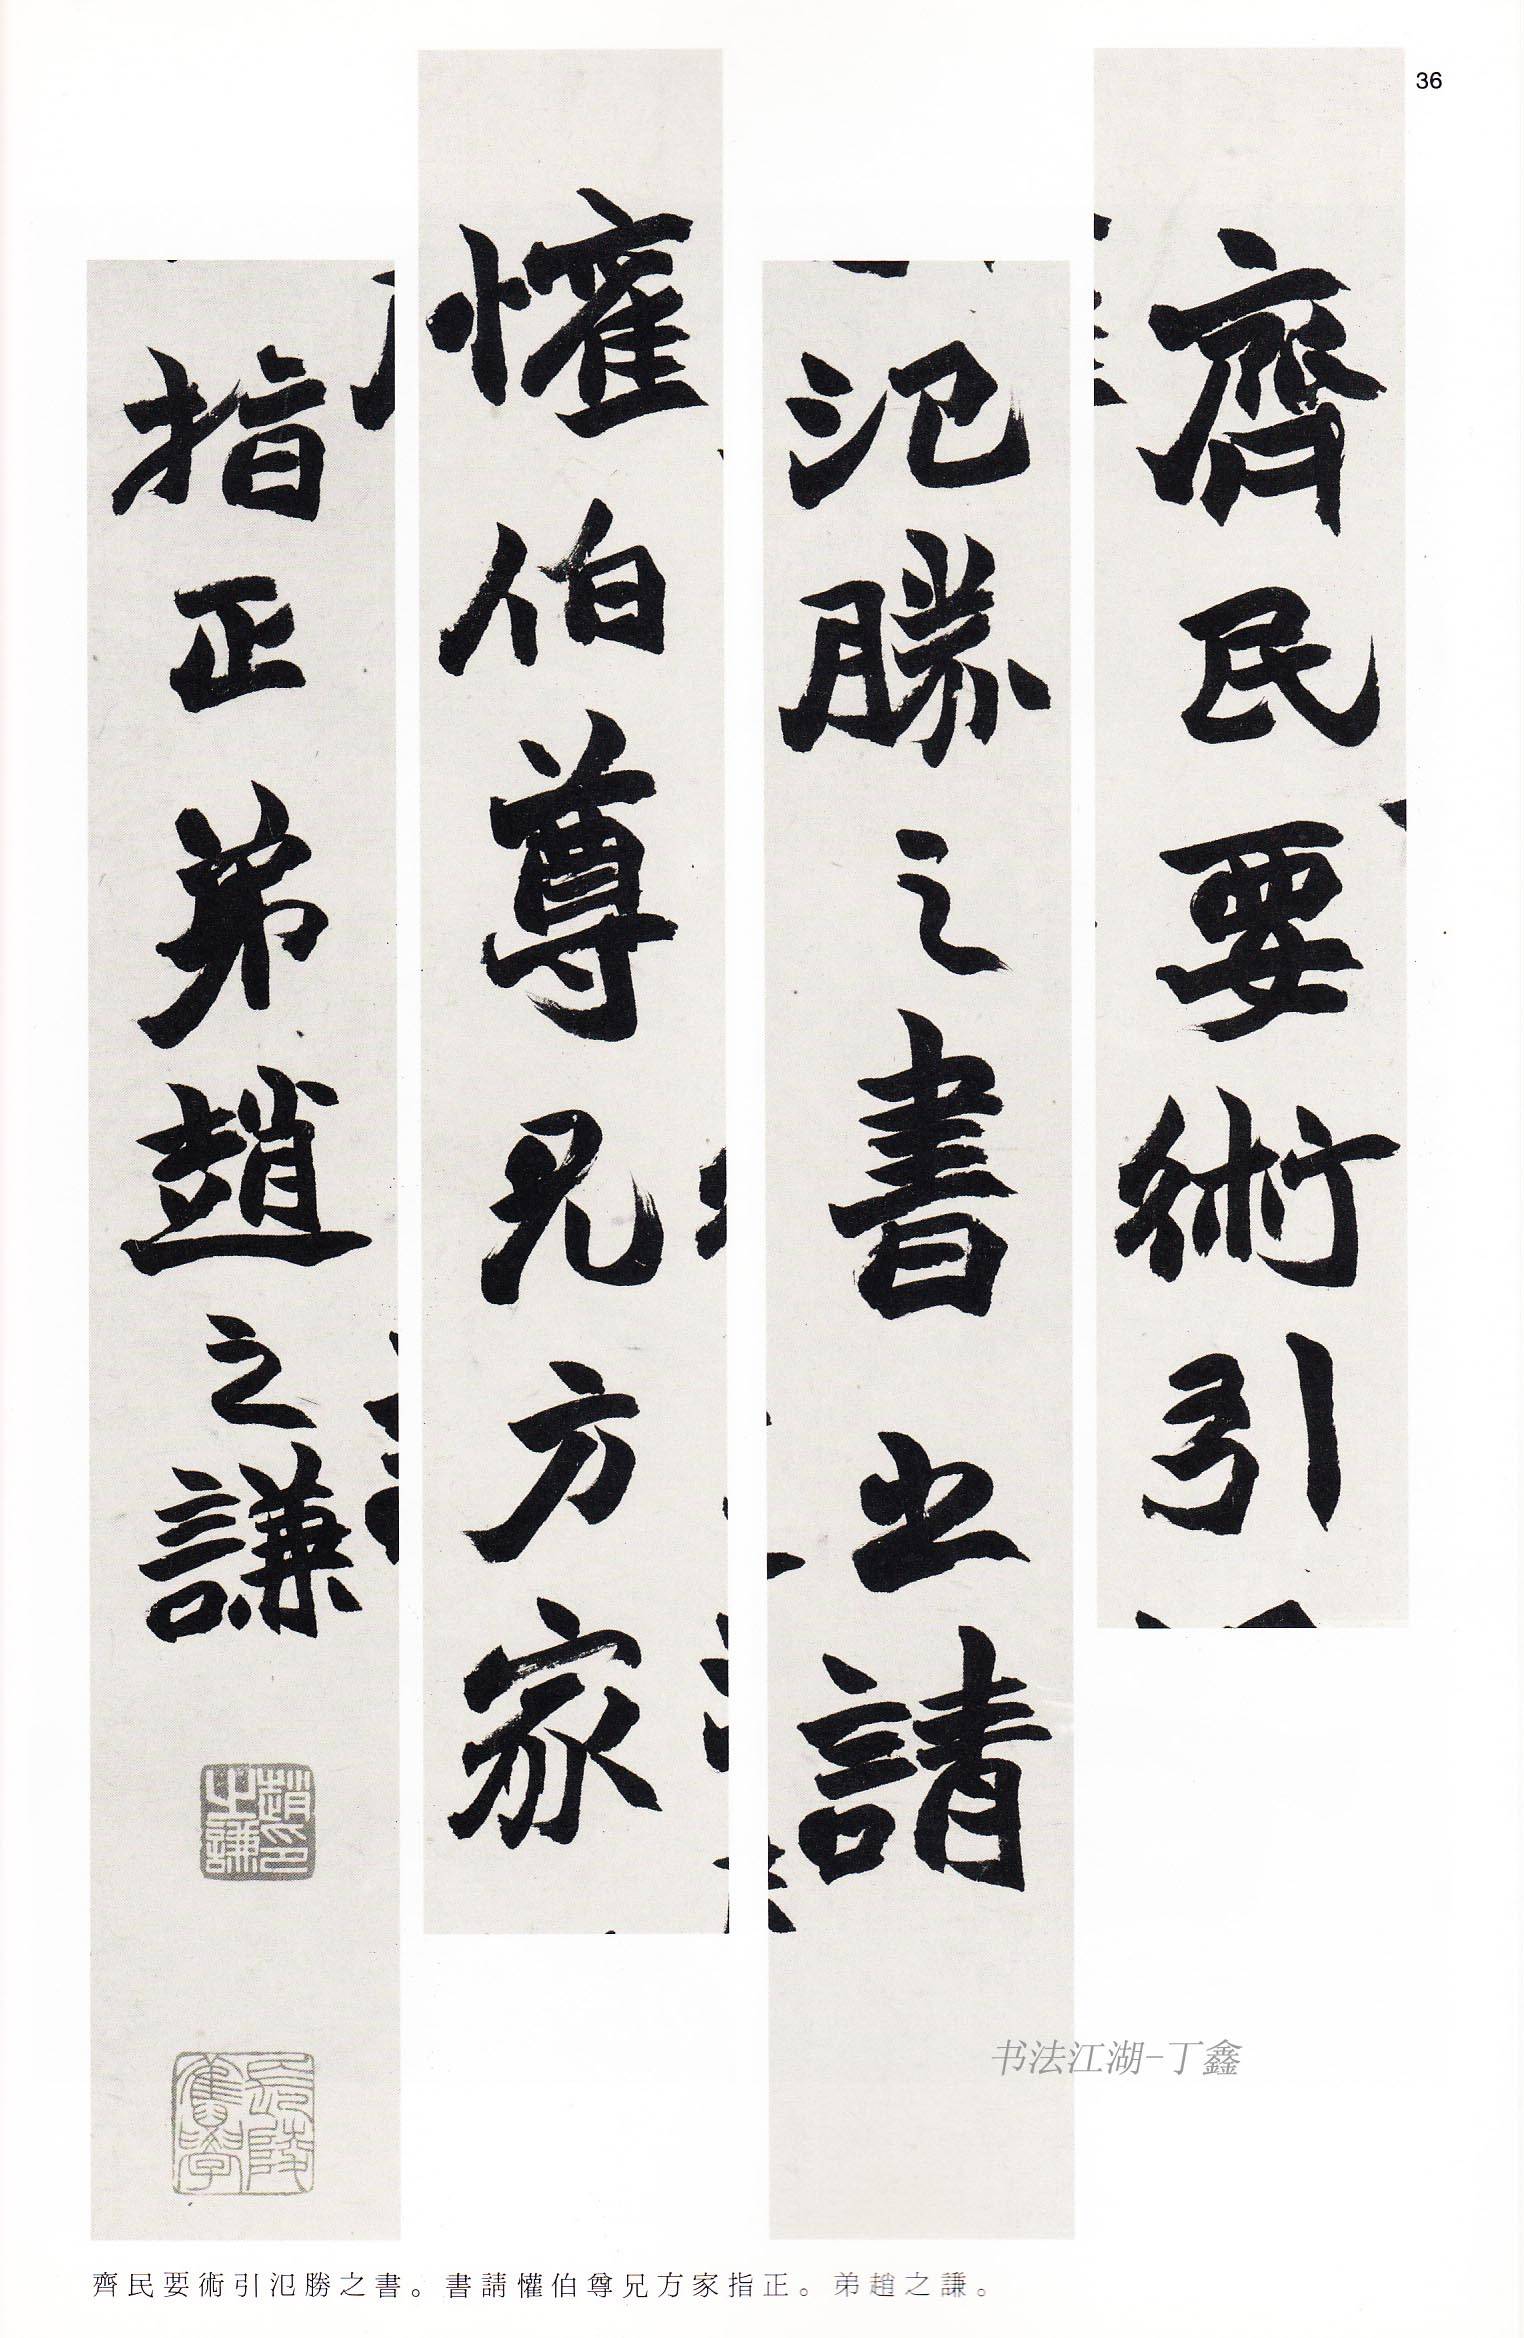 36
齊民要術引
氾勝之書㞢請
懽伯尊兄方家
指正弟趙之謙
趙之謙印
书法江湖-丁鑫
齊民要術引氾勝之書。書請懽伯尊兄方家指正。弟趙之謙。